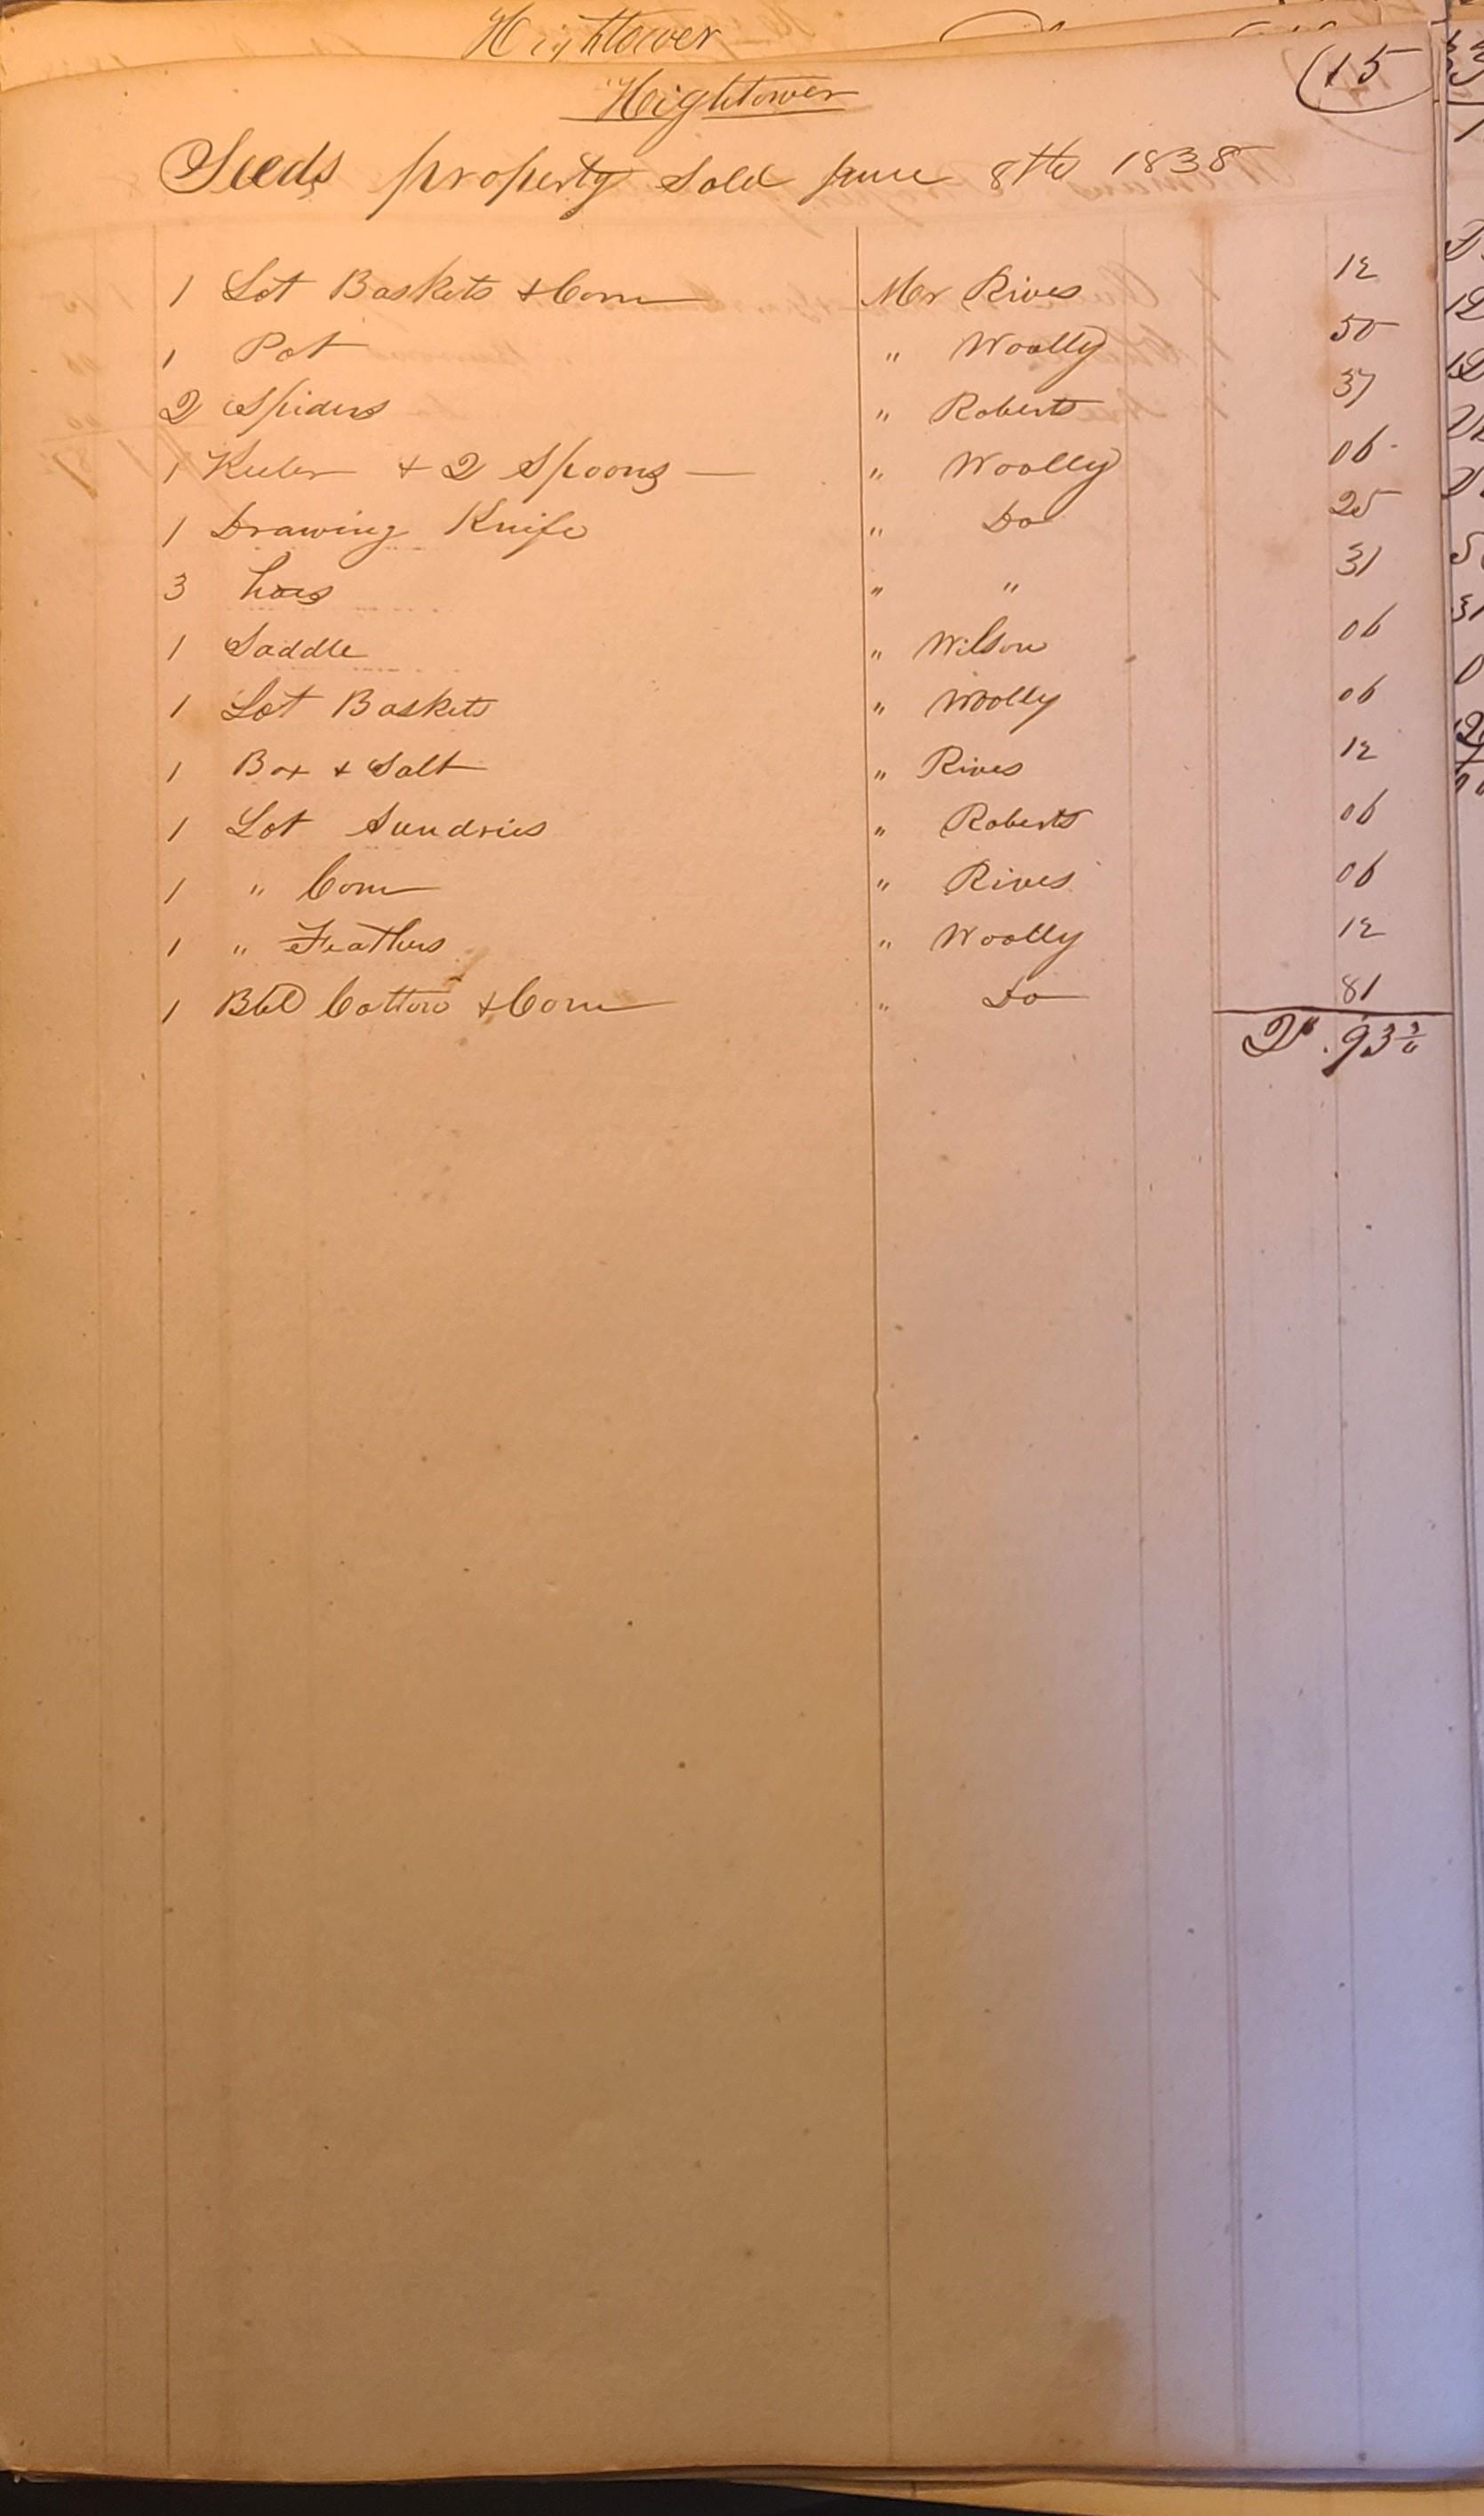 Hightower
15
Hightower
Seeds property Sold June 8th 1838
1 Lot Baskets + Corn Mr Rives 12
1 Pot " Woolly 50
2 Spiders " Roberts 37
1 Keeler + 2 Spoons — " Woolly 06
1 Drawing Knife " Do 25
3 hoes " " 31
1 Saddle " Wilson 06
1 Lot Baskets " Woolly 06
1 Box + Salt " Rives 12
1 Lot Sundries " Roberts 06
1 " Corn " Rives 06
1 " Feathers " Woolly 12
1 Bbl Cotton + Corn " Do 81
2 . 93